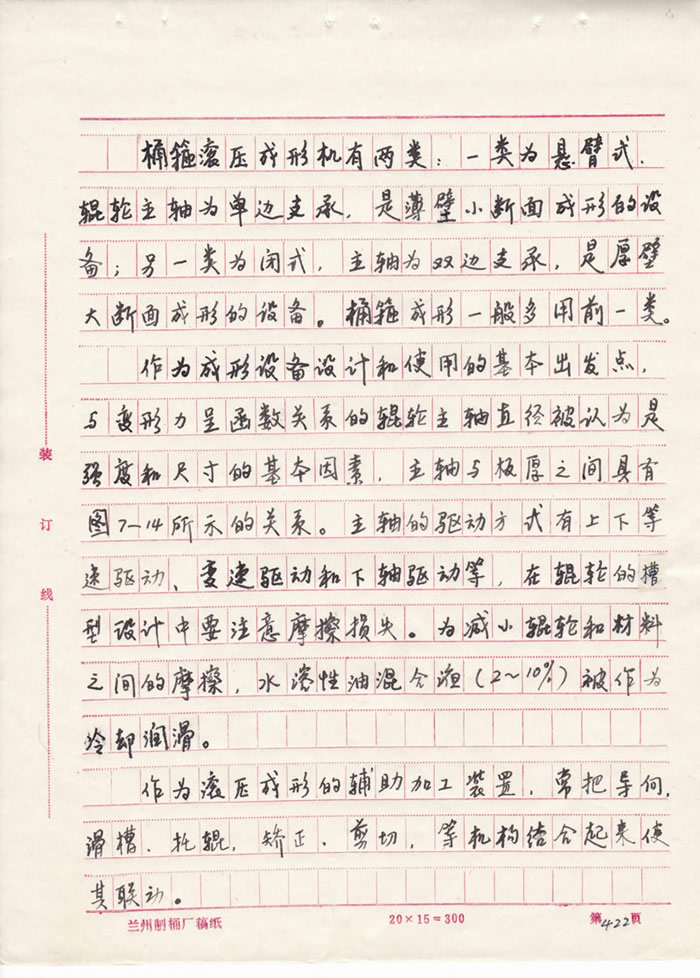 桶箍滚压成形机有两类：一类为悬臂式，
辊轮主轴为单边支承，是薄壁小断面成形的设
备；另一类为闭式，主轴为双边支承，是厚壁
大断面成形的设备。桶箍成形一般多用前一类。
作为成形设备设计和使用的基本出发点，
与变形力呈函数关系的辊轮主轴直径被认为是
强度和尺寸的基本因素，主轴与板厚之间具有
图7—14所示的关系。主轴的驱动方式有上下等
速驱动、变速驱动和下轴驱动等，在辊轮的槽
型设计中要注意摩擦损失。为减小辊轮和材料
之间的摩擦，水溶性油混合液(2～10%)被作为
冷却润滑。
作为滚压成形的辅助加工装置，常把导向，
滑槽、托辊，矫正、剪切，等机构结合起来使
其联动。
装
订
线
兰州制桶厂稿纸 20×15=300 第422页